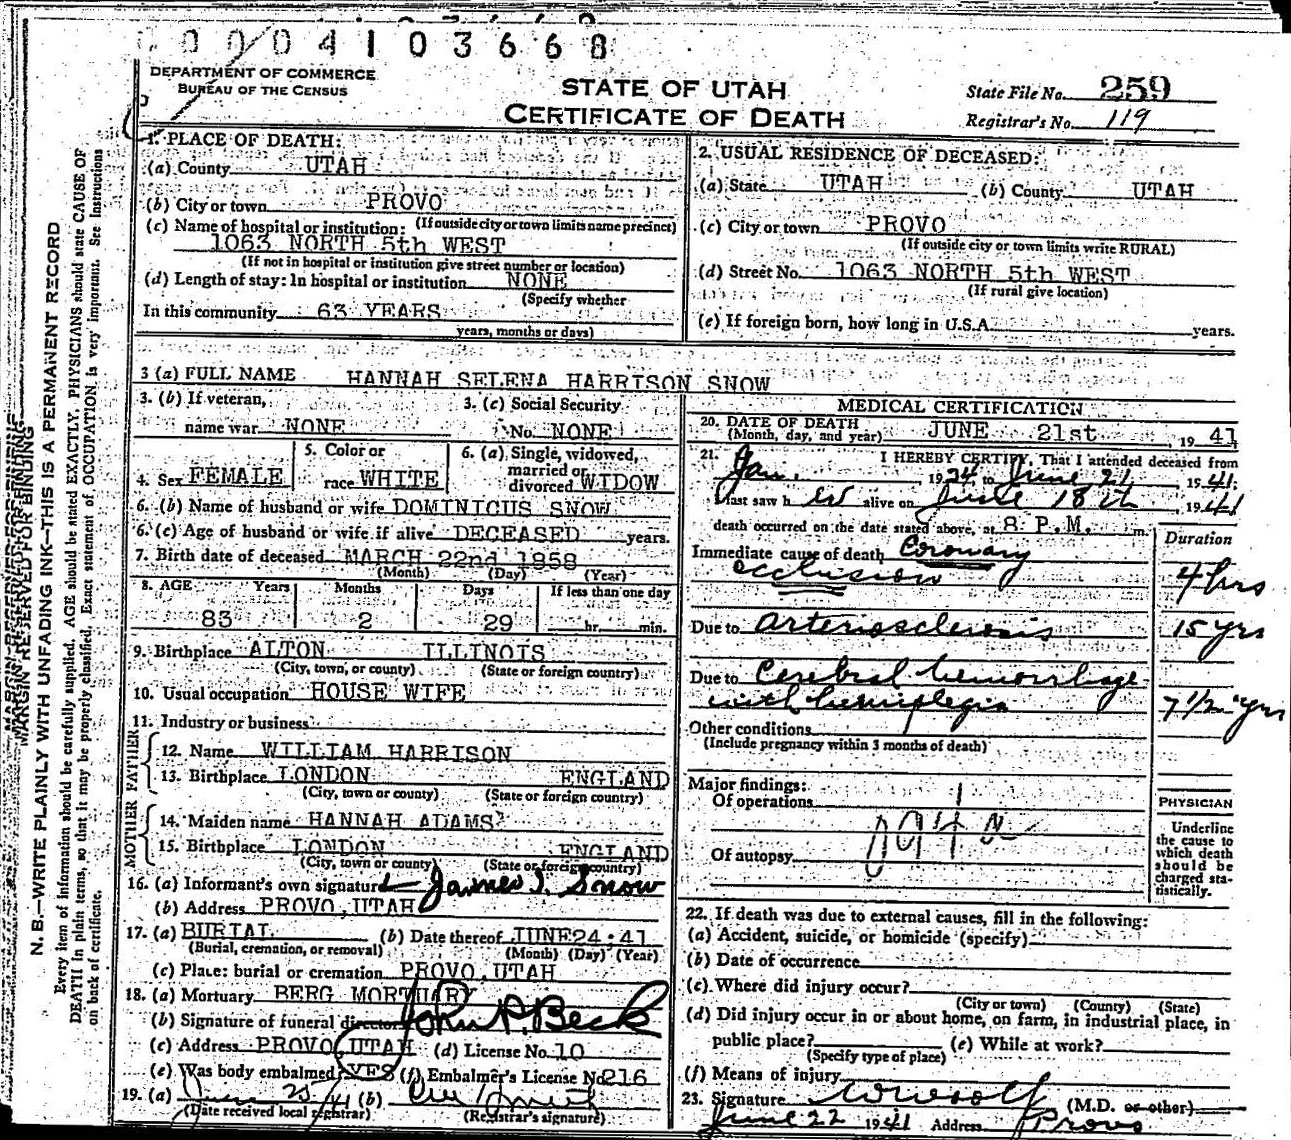 0004103668
DEPARTMENT OF COMMERCE
BUREAU OF THE CENSUS
STATE OF UTAH
CERTIFICATE OF DEATH
State File No. 259
Registrar's No. 119
1. PLACE OF DEATH:
(a) County UTAH
(b) City or town PROVO
(If outside city or town limits name precinct)
(c) Name of hospital or institution:
1063 NORTH 5th WEST
(If not in hospital or institution give street number or location)
(d) Length of stay: In hospital or institution NONE
(Specify whether
In this community 63 YEARS
years, months or days)
2. USUAL RESIDENCE OF DECEASED:
(a) State UTAH (b) County UTAH
(c) City or town PROVO
(If outside city or town limits write RURAL)
(d) Street No. 1063 NORTH 5th WEST
(If rural give location)
(e) If foreign born, how long in U.S.A. years.
3 (a) FULL NAME HANNAH SELENA HARRISON SNOW
3. (b) If veteran, name war NONE
3. (c) Social Security No. NONE
4. Sex FEMALE
5. Color or race WHITE
6. (a) Single, widowed, married or divorced WIDOW
6. (b) Name of husband or wife DOMINICUS SNOW
6. (c) Age of husband or wife if alive DECEASED years.
7. Birth date of deceased MARCH 22nd 1858
(Month) (Day) (Year)
8. AGE Years Months Days If less than one day
83 2 29 hr. min.
9. Birthplace ALTON ILLINOIS
(City, town, or county) (State or foreign country)
10. Usual occupation HOUSE WIFE
11. Industry or business
FATHER
12. Name WILLIAM HARRISON
13. Birthplace LONDON ENGLAND
(City, town or county) (State or foreign country)
MOTHER
14. Maiden name HANNAH ADAMS
15. Birthplace LONDON ENGLAND
(City, town or county) (State or foreign country)
16. (a) Informant's own signature James J. Snow
(b) Address PROVO, UTAH
17. (a) BURIAL (b) Date thereof JUNE 24 41
(Burial, cremation, or removal) (Month) (Day) (Year)
(c) Place: burial or cremation PROVO, UTAH
18. (a) Mortuary BERG MORTUARY
(b) Signature of funeral director John P. Beck
(c) Address PROVO, UTAH (d) License No. 10
(e) Was body embalmed YES (f) Embalmer's License No 216
19. (a) June 25/41 (b)
(Date received local registrar) (Registrar's signature)
MEDICAL CERTIFICATION
20. DATE OF DEATH
(Month, day, and year) JUNE 21st, 19 41
21. I HEREBY CERTIFY, That I attended deceased from
Jan. 1934 to June 21 1941;
I last saw her alive on June 18th, 1941
death occurred on the date stated above, at 8 P.M. m.
Duration
Immediate cause of death Coronary
occlusion 4 hrs
Due to arteriosclerosis 15 yrs
Due to Cerebral hemorrhage
with hemiplegia 7 1/2 yrs
Other conditions
(Include pregnancy within 3 months of death)
Major findings:
Of operations
Of autopsy
PHYSICIAN
Underline
the cause to
which death
should be
charged sta-
tistically.
22. If death was due to external causes, fill in the following:
(a) Accident, suicide, or homicide (specify)
(b) Date of occurrence
(c) Where did injury occur?
(City or town) (County) (State)
(d) Did injury occur in or about home, on farm, in industrial place, in
public place? (e) While at work?
(Specify type of place)
(f) Means of injury
23. Signature (M.D. or other)
June 22 1941 Address Provo
MARGIN RESERVED FOR BINDING
N. B.—WRITE PLAINLY WITH UNFADING INK—THIS IS A PERMANENT RECORD
Every item of information should be carefully supplied. AGE should be stated EXACTLY. PHYSICIANS should state CAUSE OF
DEATH in plain terms, so that it may be properly classified. Exact statement of OCCUPATION is very important. See Instructions
on back of certificate.